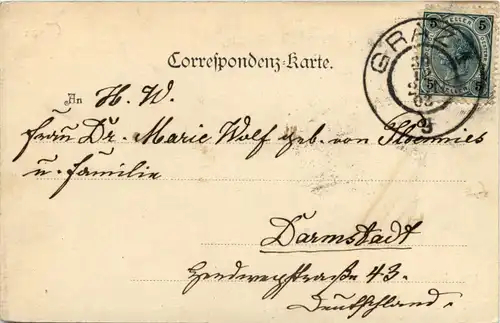 5 HELLER 5
GRAZ
Correspondenz-Karte.
An H. W.
Frau Dr. Marie Wolf geb. von Ploennies
u. Familie
Darmstadt
Hendwegstraße 43.
Deutschland.